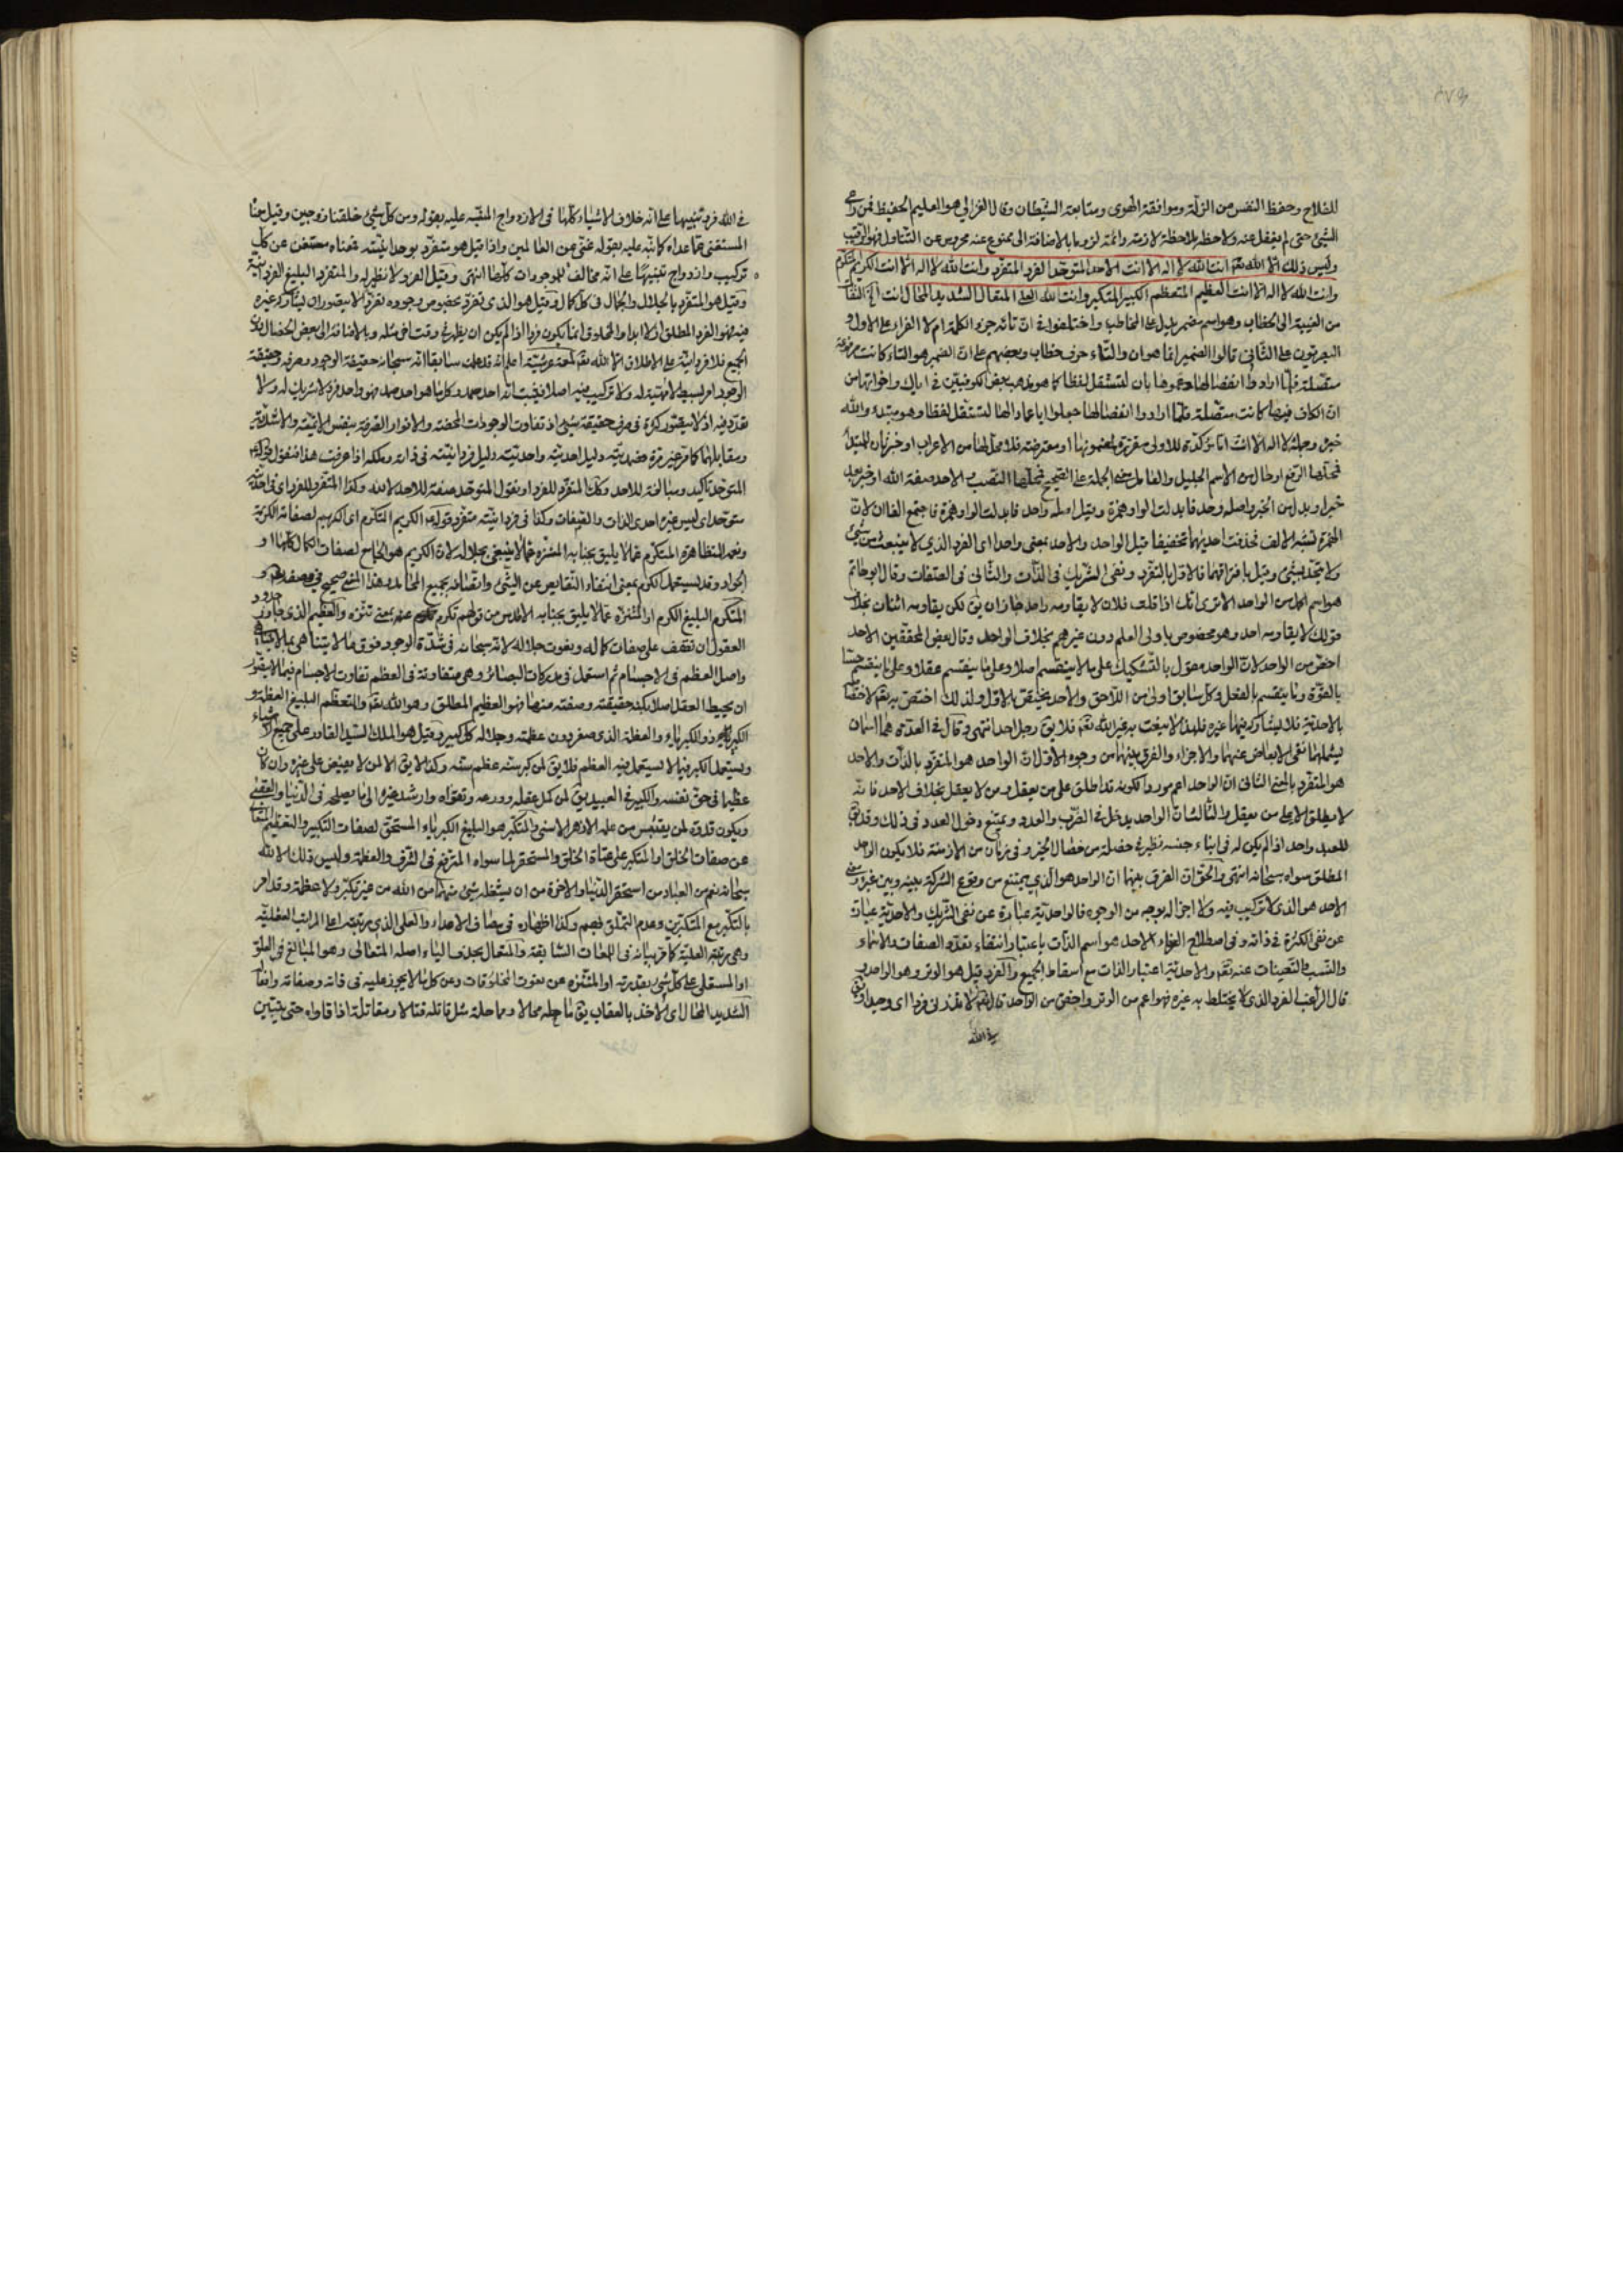 للفلاح وحفظ النفس من الزلة وموافقة الهوى ومتابعة الشيطان وقال الغزالي هو العليم الحفيظ فمن راعى
الشيئ حتى لم يغفل عنه ولاحظه ملاحظة لازمة دائمة لزوما بالاضافة الى ممنوع عنه محروس عن التناول فهو الرقيب
وليس ذلك الا الله تعه انت الله لا اله الا انت الاحد المتوحد الفرد المتفرد وانت الله لا اله الا انت الكريم المتكرم
وانت الله لا اله الا انت العظيم المتعظم الكبير المتكبر وانت الله العلى المتعال الشديد المحال
من الغيبة الى الخطاب وهو اسم مضمر يدل على المخاطب واختلفوا فى ان تائه جزء الكلمة ام لا الفراء على الاول و
البصريون على الثانى قالوا الضمير انما هو ان والتاء حرف خطاب وبعضهم على ان الضمير هو التاء كانت مرفوعة
متصلة فلما ارادوا انفصالها دعموها بان لتستقل لفظا كما هو مذهب بعض الكوفيين فى اياك واخواتها من
ان الكاف فيها كانت متصلة فلما ارادوا انفصالها جعلوا ايا عمادا لها لتستقل لفظا وهو مبتدء والله
خبره وجملة لا اله الا انت اما مؤكدة للاولى مقررة لمضمونها او معترضة فلا محل لها من الاعراب او خبر ثان للمبتدا
فمحلها الرفع او حال من الاسم الجليل والعامل معنى الجملة على الصحيح فمحلها النصب الاحد صفة الله او خبر بعد
خبر او بدل من الخبر واصله وحد فابدلت الواو همزة وقيل اصله واحد فابدلت الواو همزة فاجتمع الفان لان
الهمزة تشبه الالف فحذفت احديهما تخفيفا قيل الواحد والاحد بمعنى واحد اى الفرد الذى لا ينبعث من شيئ
ولا يتحد بشيئ وقيل بافتراقهما فالاول بالتفرد ونفى الشريك فى الذات والثانى فى الصفات وقال ابو حاتم
هو اسم اكمل من الواحد الا ترى انك اذا قلت فلان لا يقاومه واحد جاز ان يق لكن يقاومه اثنان بخلاف
قولك لا يقاومه احد وهو مخصوص باولى العلم دون غيرهم بخلاف الواحد وقال بعض المحققين الاحد
اخص من الواحد لان الواحد مقول بالتشكيك على ما لا ينقسم اصلا وعلى ما ينقسم عقلا وعلى ما ينقسم حسا
بالقوة وما ينقسم بالفعل وكل سابق اولى من اللاحق والاحد يختص بالاول ولذلك اختص به تعه لاختصاصه
بالاحدية فلا يشاركه فيها غيره فلهذا لا ينعت به غير الله تعه فلا يق رجل احد انتهى وقال فى العدة هما اسمان
يشملهما نفى الابعاض عنهما والاجزاء والفرق بينهما من وجوه الاول ان الواحد هو المتفرد بالذات والاحد
هو المتفرد بالمعنى الثانى ان الواحد اعم موردا لكونه قد اطلق على من يعقل ومن لا يعقل بخلاف الاحد فانه
لا يطلق الا على من يعقل والثالث ان الواحد يدخل فى الضرب والعدد ويمتنع دخول الاحد فى ذلك وقد يق
للعبد واحد اذا لم يكن له فى ابناء جنسه نظير فى خصلة من خصال الخير وفى زمان من الازمنة فلا يكون الواحد
المطلق سواه سبحانه انتهى والحق ان الفرق بينهما ان الواحد هو الذى يمتنع من وقوع الشركة بينه وبين غيره
الاحد هو الذى لا تركيب فيه ولا اجزاء له بوجه من الوجوه فالواحدية عبارة عن نفى الشريك والاحدية عبارة
عن نفى الكثرة فى ذاته وفى اصطلاح العرفاء الاحد هو اسم الذات باعتبار انتفاء تعدد الصفات والاسماء
والنسب والتعينات عنه تعه والاحدية اعتبار الذات مع اسقاط الجميع والفرد قيل هو الوتر وهو الواحد و
قال الراغب الفرد الذى لا يختلط به غيره فهو اعم من الوتر واخص من الواحد قال تعه لا تذرنى فردا اى وحيدا ويق
فى الله
فى الله فرد تنبيها على انه خلاف الاشياء كلها فى الازدواج المنبه عليه بقوله ومن كل شيئ خلقنا زوجين وقيل معناه
المستغنى عما عداه كما نبه عليه بقوله غنى عن العالمين واذا قيل هو متفرد بوحدانيته فمعناه مستغن عن كل
تركيب وازدواج تنبيها على انه مخالف للموجودات كلها انتهى وقيل الفرد لا نظير له والمتفرد البليغ الفردانية
وقيل هو المتفرد بالجلال والجمال فى كل كمال وقيل هو الذى تفرد بخصوص وجوده تفردا لا يتصور ان يشاركه غيره
فيه فهو الفرد المطلق ازلا وابدا والمخلوق انما يكون فردا اذا لم يكن ان يظهر فى وقت اخر مثله وبالاضافة الى بعض الخصال دون
الجميع فلا فردانية على الاطلاق الا لله تعه لمعة عرشية اعلم انه قد علمت سابقا انه سبحانه حقيقة الوجود وصرفه وحقيقة
الوجود امر بسيط لا مهية له ولا تركيب فيه اصلا فيثبت انه احد صمد وكل ما هو احد صمد فهو واحد فرد لا شريك له ولا
تعدد فيه اذ لا يتصور كثرة فى صرف حقيقة شيئ اذ تفاوت الوجودات المحضة والانوار الصرفة بنفس الانية والاشدية
ومقابلها كما مر غير مرة فصمديته دليل احديته واحديته دليل فردانيته فى ذاته وملكه اذا عرفت هذا فنقول قوله
المتوحد تاكيد ومبالغة للاحد وكك المتفرد للفرد او نقول المتوحد صفة للاحد لا لله وكذا المتفرد للفرد اى فى احديته
متوحد اى ليس غيره احدى الذات والصفات وكذا فى فردانيته متفرد قوله الكريم المتكرم اى الكريم لصفاته الكريمة
ونعمه المتظاهرة المتكرم عما لا يليق بجنابه المتنزه عما لا ينبغى بجلاله لان الكريم هو الجامع لصفات الكمال كلها او
الجواد وقد يستعمل الكرم بمعنى انتفاء النقايص عن الشيئ واتصافه بجميع المحامد وهذا المعنى صحيح فى وصفه تعه و
المتكرم البليغ الكرم او المتنزه عما لا يليق بجنابه الاقدس من قولهم تكرم عنه بمعنى تنزه والعظيم الذى جاوز حدود
العقول ان تقف على صفات كماله ونعوت جلاله لانه سبحانه فى شدة الوجود فوق ما لا يتناهى بما لا يتناهى
واصل العظم فى الاجسام ثم استعمل فى مدركات البصائر وهى متفاوتة فى العظم تفاوت الاجسام فيما لا يتصور
ان يحيط العقل اصلا بكنه حقيقته وصفته منها فهو العظيم المطلق وهو الله تعه والمتعظم البليغ العظمة و
الكبير ذو الكبرياء والعظمة الذى صغر دون عظمته وجلاله كل كبير وقيل هو الملك السيد القادر على جميع الاشياء
ويستعمل الكبر فيما لا يستعمل فيه العظم فلا يق لمن كبر سنه عظم سنه وكذا لا يق الا لمن لا يفيض على غيره وان كان
عظيما فى حق نفسه والكبير فى العبيد يق لمن كمل عقله وورعه وتقواه وارشد غيره الى ما يصلحه فى الدنيا والعقبى
ويكون قدوة لمن يقتبس من علمه الازهر الاسنى والمتكبر هو البليغ الكبرياء المستحق لصفات التكبير والتعظيم المتعالى
عن صفات الخلق او المتكبر على عتاة الخلق والمستحقر لما سواه المترفع فى الشرف والعظمة وليس ذلك الا لله
سبحانه نعم من العباد من استحقر الدنيا والاخرة من ان يشغله شيئ منهما من الله من غير تكبر ولا عظمة وقد امر
بالتكبر مع المتكبرين وعدم التملق معهم وكذا اظهاره فى مصاف الاعداء والعلى الذى مرتبته اعلى المراتب العقلية
وهى مرتبة العلية كما مر بيانه فى اللمعات السابقة والمتعال بحذف الياء اصله المتعالى وهو المبالغ فى العلو
او المستعلى على كل شيئ بقدرته او المتنزه عن نعوت المخلوقات وعن كل ما لا يجوز عليه فى ذاته وصفاته وافعاله
الشديد المحال اى الاخذ بالعقاب يق ماحله محالا ومماحلة مثل قاتله قتالا ومقاتلة اذا قاواه حتى يتبين